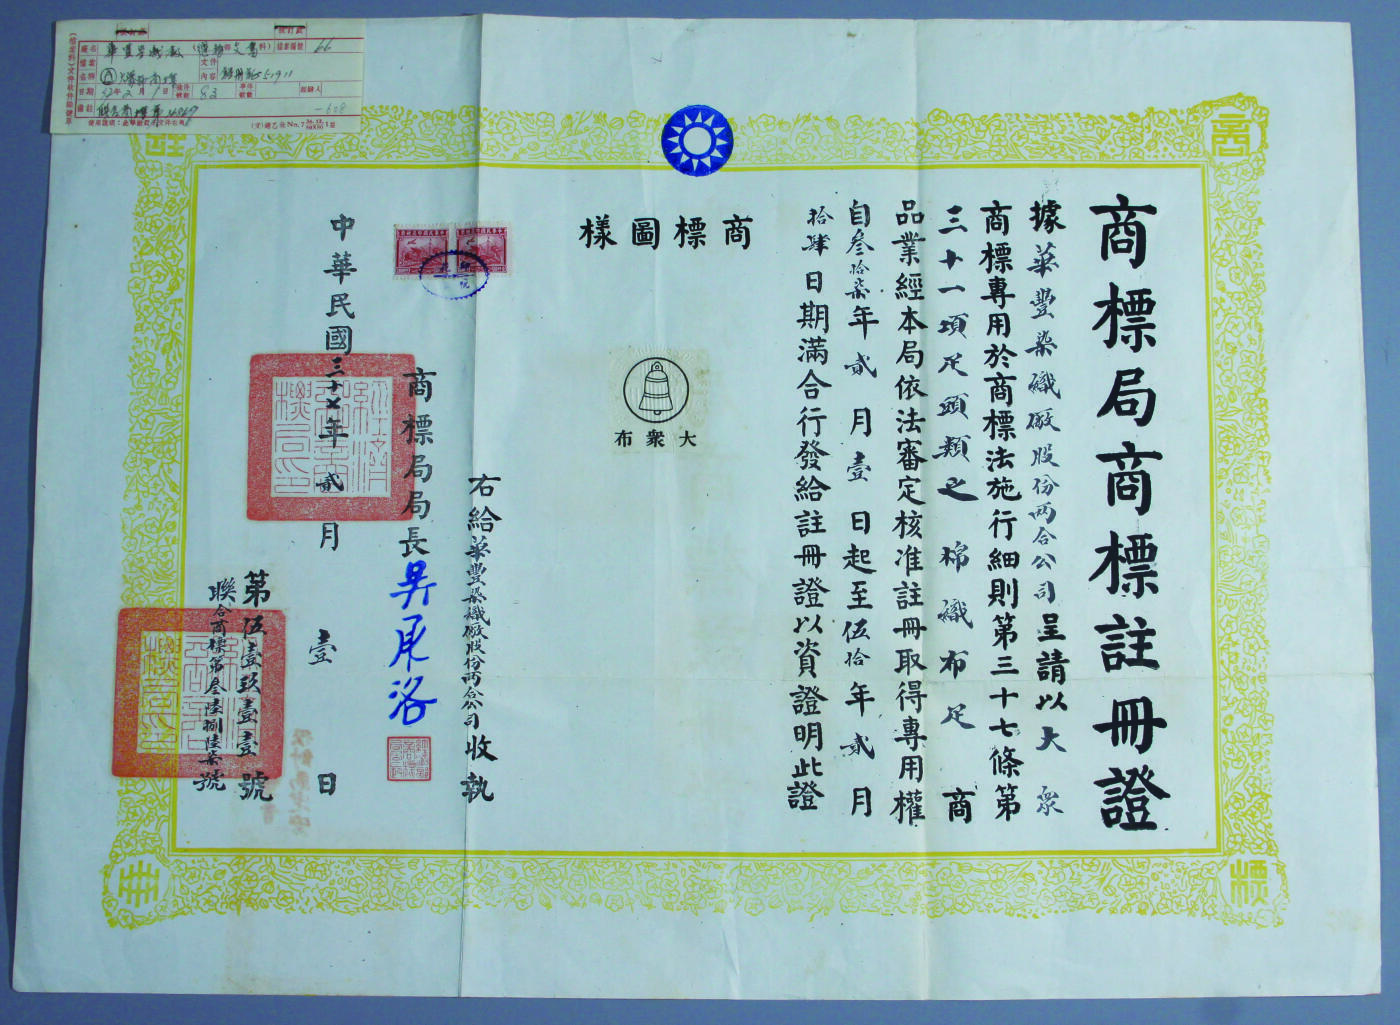 商標局商標註冊證
據華豐染織廠股份兩合公司呈請以大眾
商標專用於商標法施行細則第三十七條第
三十一項疋頭類之棉織布疋商
品業經本局依法審定核准註冊取得專用權
自叁拾柒年貳月壹日起至伍拾年貳月
拾肆日期滿合行發給註冊證以資證明此證
商標圖樣
大衆布
右給華豐染織廠股份兩合公司收執
商標局局長
中華民國三十七年貳月壹日
第伍壹玖壹壹號
聯合商標第叁陸捌陸柒號
經濟部商標局印
商
標
註
冊
廠名
檔案名稱
文件內容
檔案編號 66
日期
備註